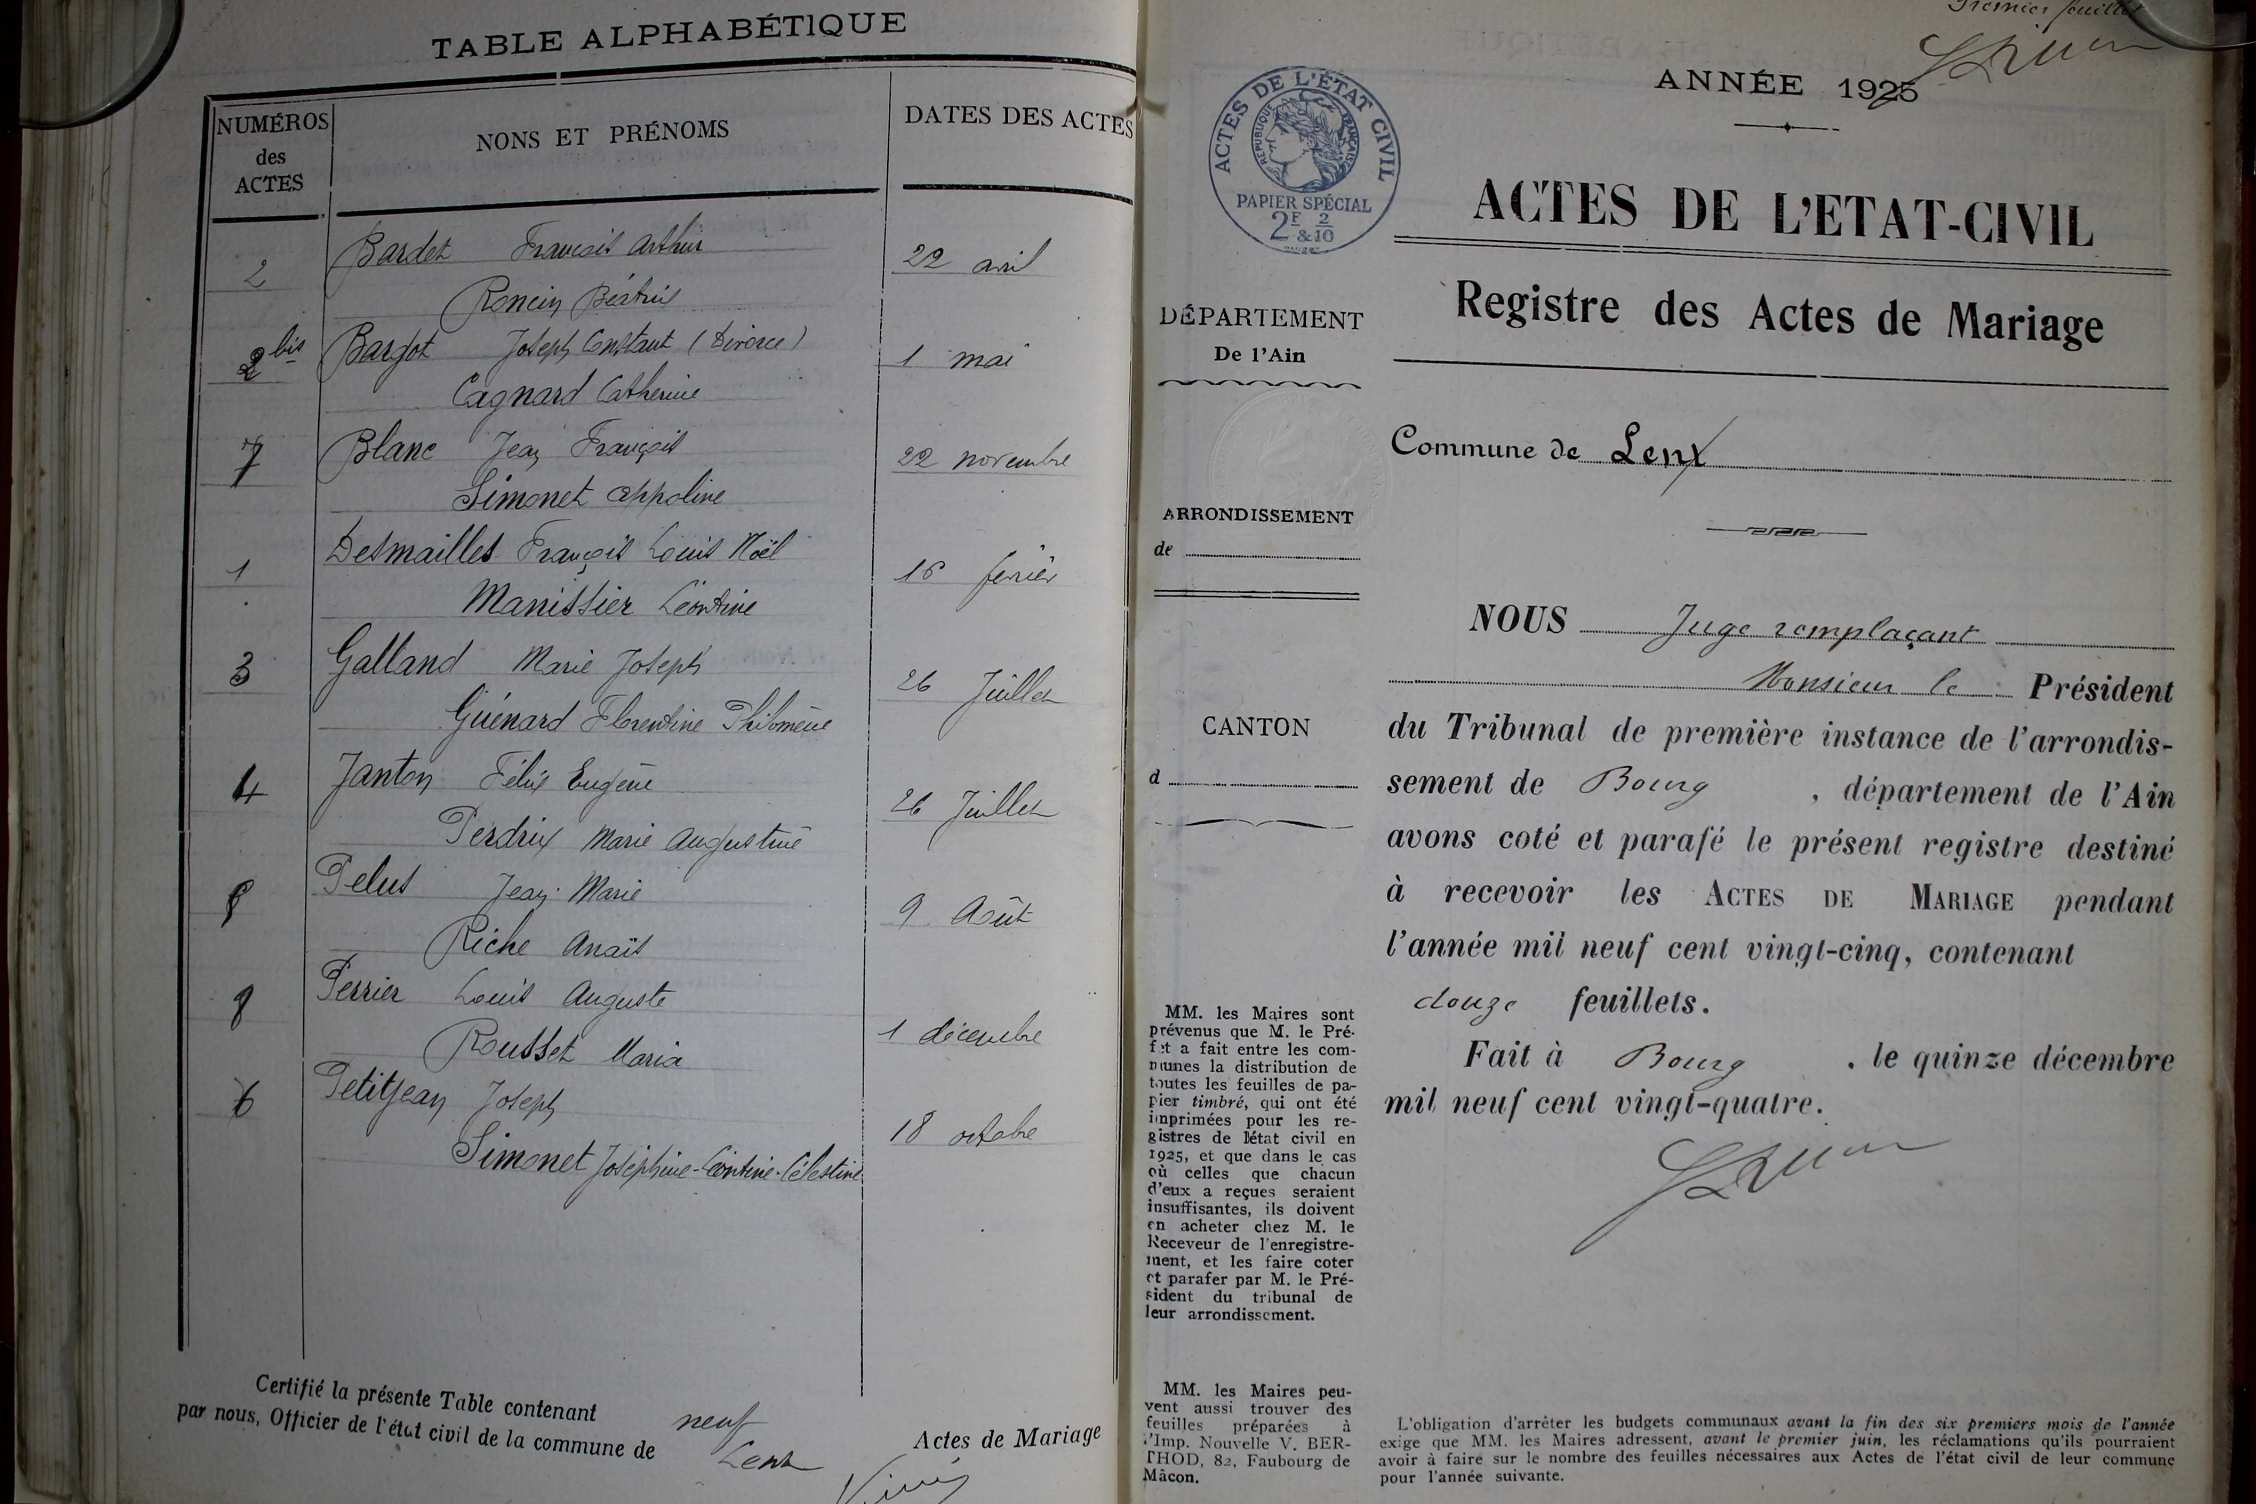 TABLE ALPHABÉTIQUE
NUMÉROS des ACTES
NONS ET PRÉNOMS
DATES DES ACTES
2 Bardet François Arthur 22 avril
Roncin Béatrix
2 bis Bargot Joseph Constant (Divorce) 1 mai
Cagnard Catherine
7 Blanc Jean François 22 novembre
Simonet Appoline
1 Desmailles François Louis Noël 16 février
Manissier Léontine
3 Galland Marie Joseph 26 Juillet
Guénard Florentine Philomène
4 Janton Félix Eugène 26 Juillet
Perdrix Marie Augustine
5 Pelus Jean-Marie 9 Août
Riche Anaïs
8 Perrier Louis Auguste 1 décembre
Rousset Maria
6 Petitjean Joseph 18 octobre
Simonet Joséphine-Léontine-Célestine
Certifié la présente Table contenant neuf Actes de Mariage
par nous, Officier de l'état civil de la commune de Lent
Premier feuillet
ANNÉE 1925
ACTES DE L'ÉTAT CIVIL
RÉPUBLIQUE FRANÇAISE
PAPIER SPÉCIAL
2F & 2/10
ACTES DE L'ETAT-CIVIL
Registre des Actes de Mariage
DÉPARTEMENT
De l'Ain
Commune de Lent
ARRONDISSEMENT
de
CANTON
d
NOUS Juge remplaçant
Monsieur le Président
du Tribunal de première instance de l'arrondis-
sement de Bourg , département de l'Ain
avons coté et parafé le présent registre destiné
à recevoir les ACTES DE MARIAGE pendant
l'année mil neuf cent vingt-cinq, contenant
douze feuillets.
Fait à Bourg , le quinze décembre
mil neuf cent vingt-quatre.
MM. les Maires sont
prévenus que M. le Pré-
fet a fait entre les com-
munes la distribution de
toutes les feuilles de pa-
pier timbré, qui ont été
imprimées pour les re-
gistres de l'état civil en
1925, et que dans le cas
où celles que chacun
d'eux a reçues seraient
insuffisantes, ils doivent
en acheter chez M. le
Receveur de l'enregistre-
ment, et les faire coter
et parafer par M. le Pré-
sident du tribunal de
leur arrondissement.
MM. les Maires peu-
vent aussi trouver des
feuilles préparées à
l'Imp. Nouvelle V. BER-
THOD, 82, Faubourg de
Mâcon.
L'obligation d'arrêter les budgets communaux avant la fin des six premiers mois de l'année
exige que MM. les Maires adressent, avant le premier juin, les réclamations qu'ils pourraient
avoir à faire sur le nombre des feuilles nécessaires aux Actes de l'état civil de leur commune
pour l'année suivante.